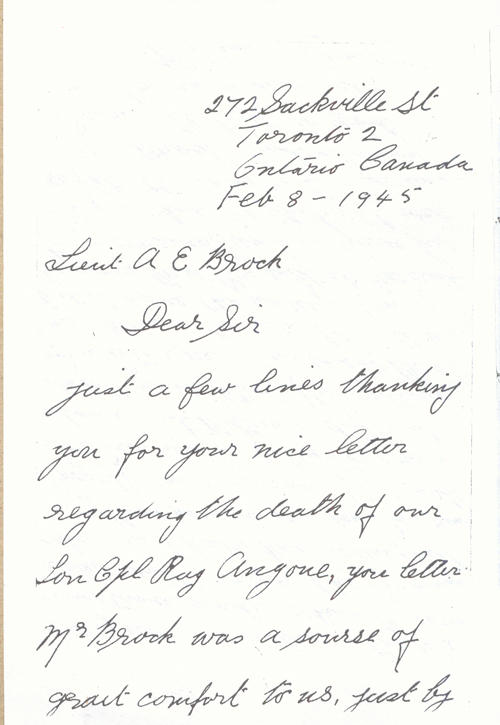 272 Sackville St
Toronto 2
Ontario Canada
Feb 8 - 1945
Lieut A E Brock
Dear Sir
just a few lines thanking
you for your nice letter
regarding the death of our
Son Cpl Ray Angone, you letter
Mr Brock was a sourse of
grait comfort to us, just by